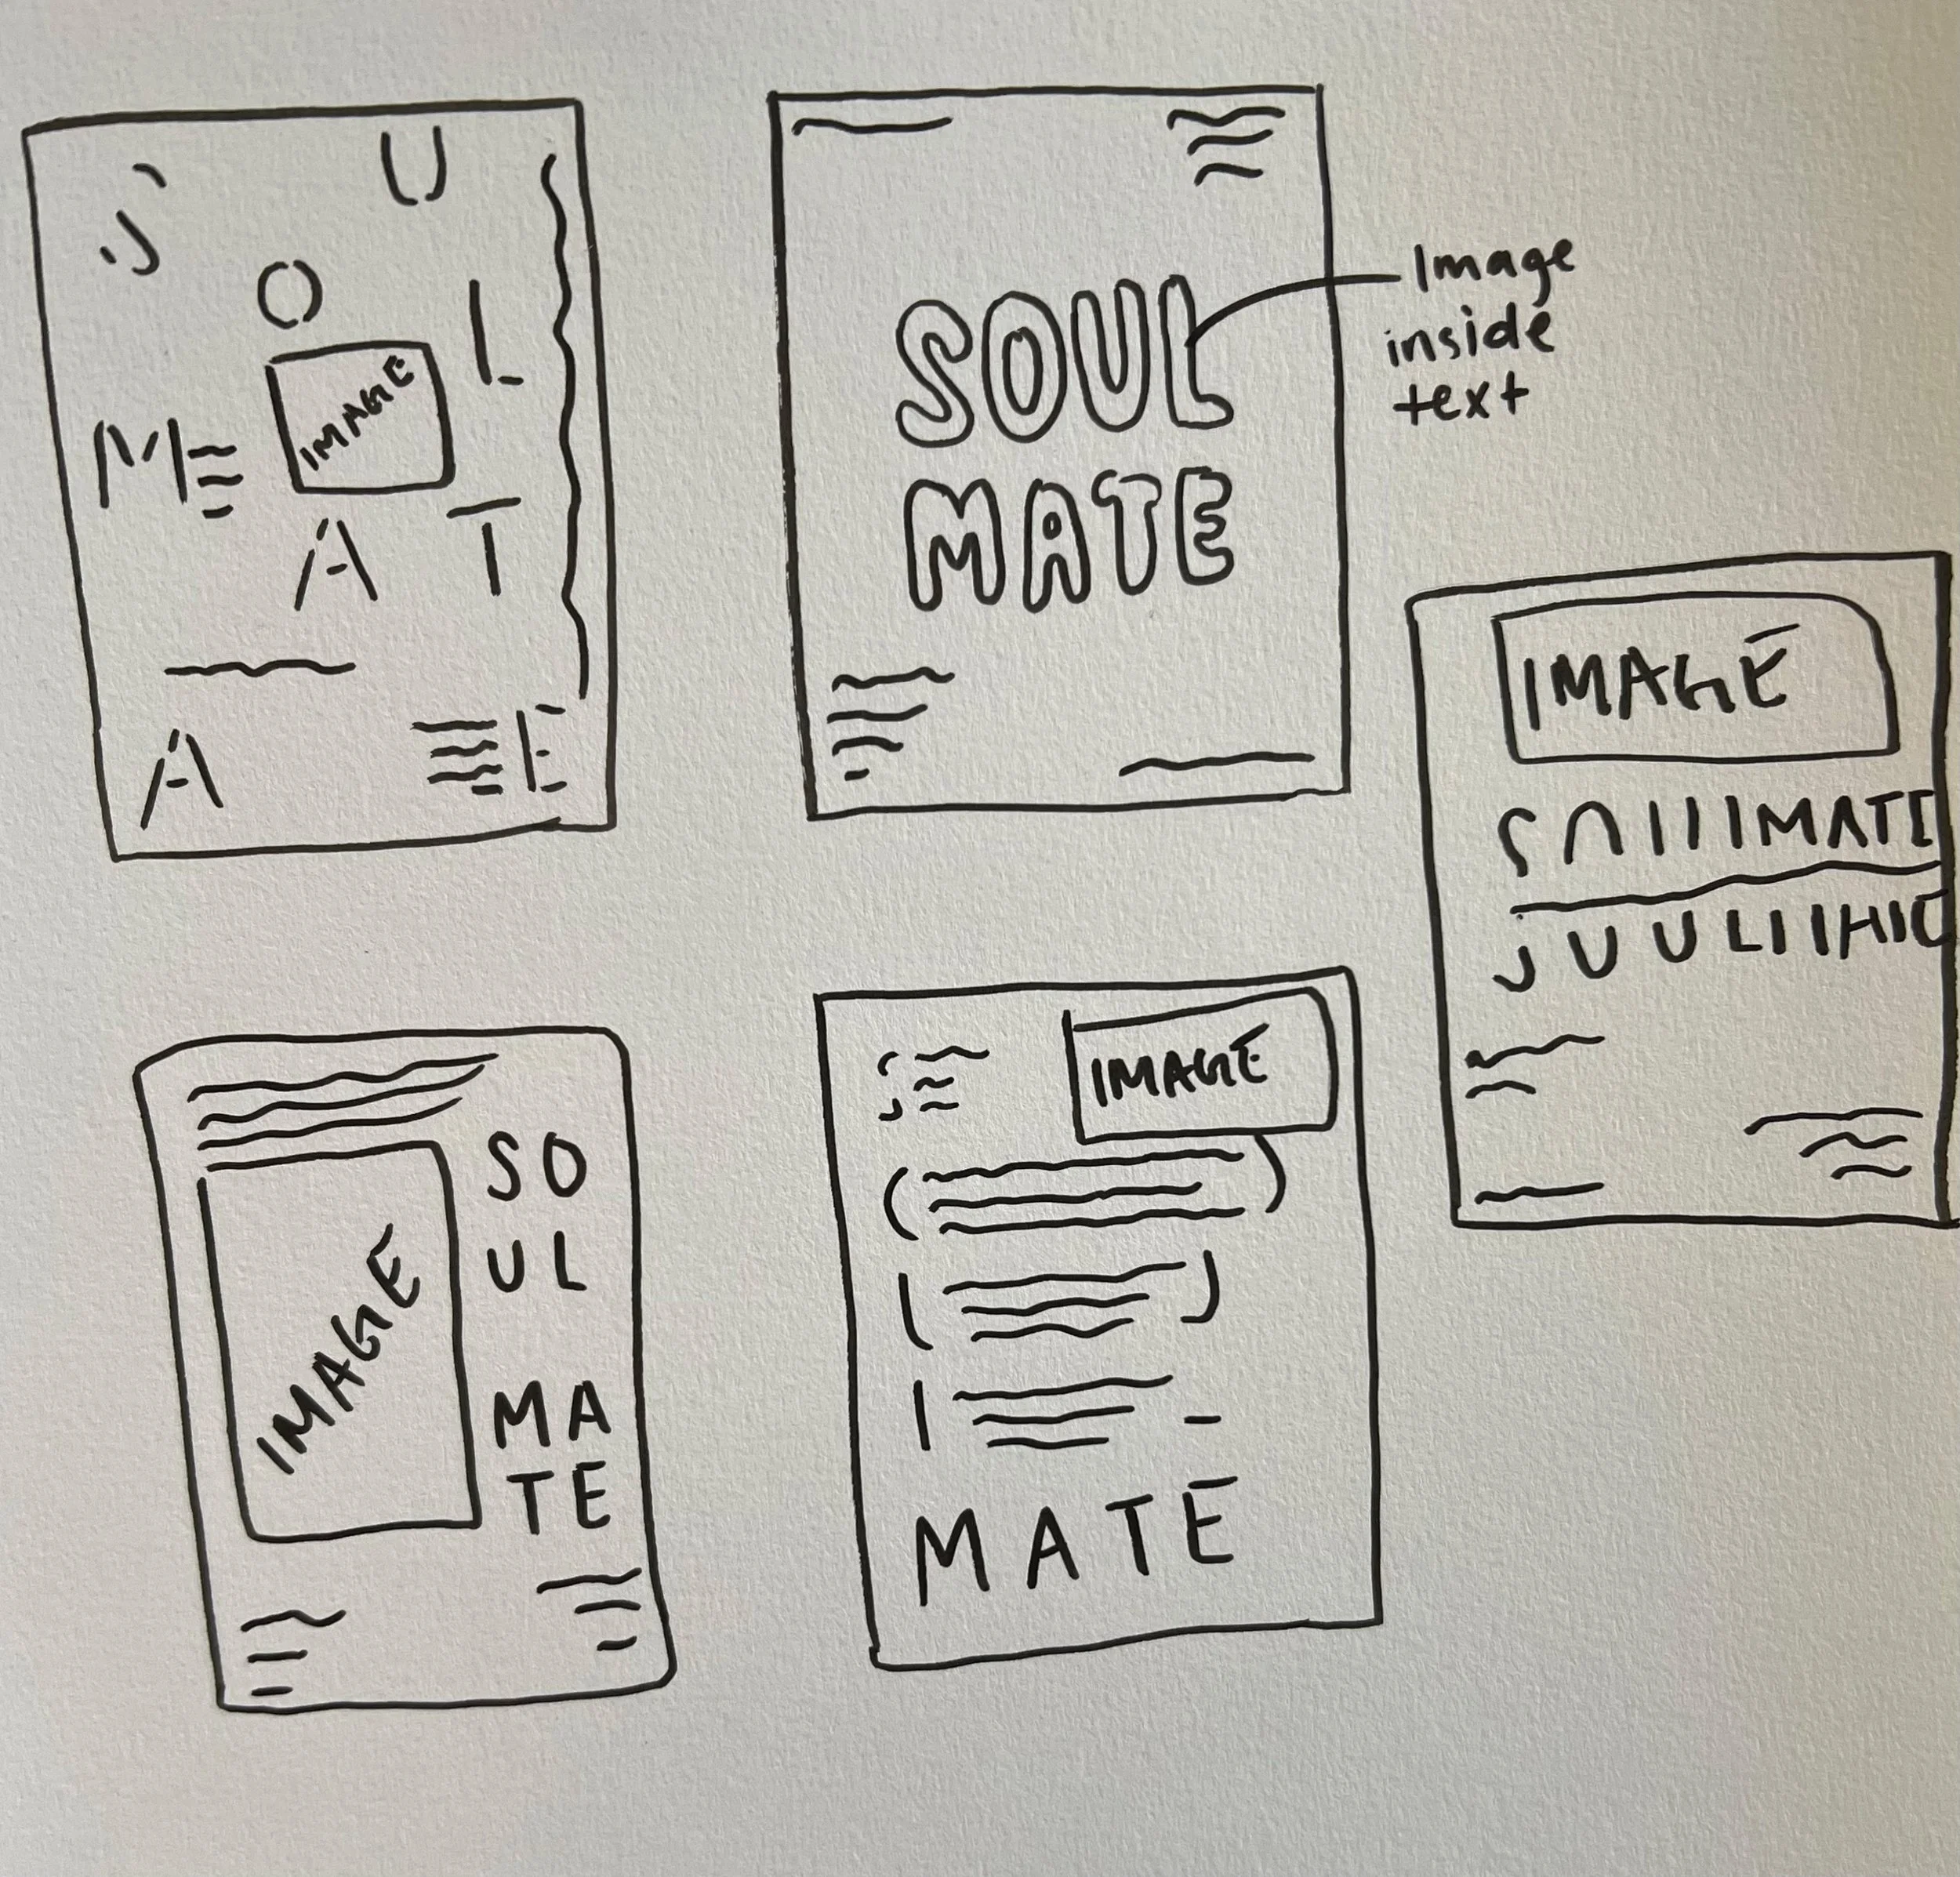 S
U
O
L
IMAGE
M
A
T
A
E
SOUL
MATE
Image
inside
text
IMAGE
SOULMATE
IMAGE
SO
UL
MA
TE
IMAGE
S
O
U
L
MATE